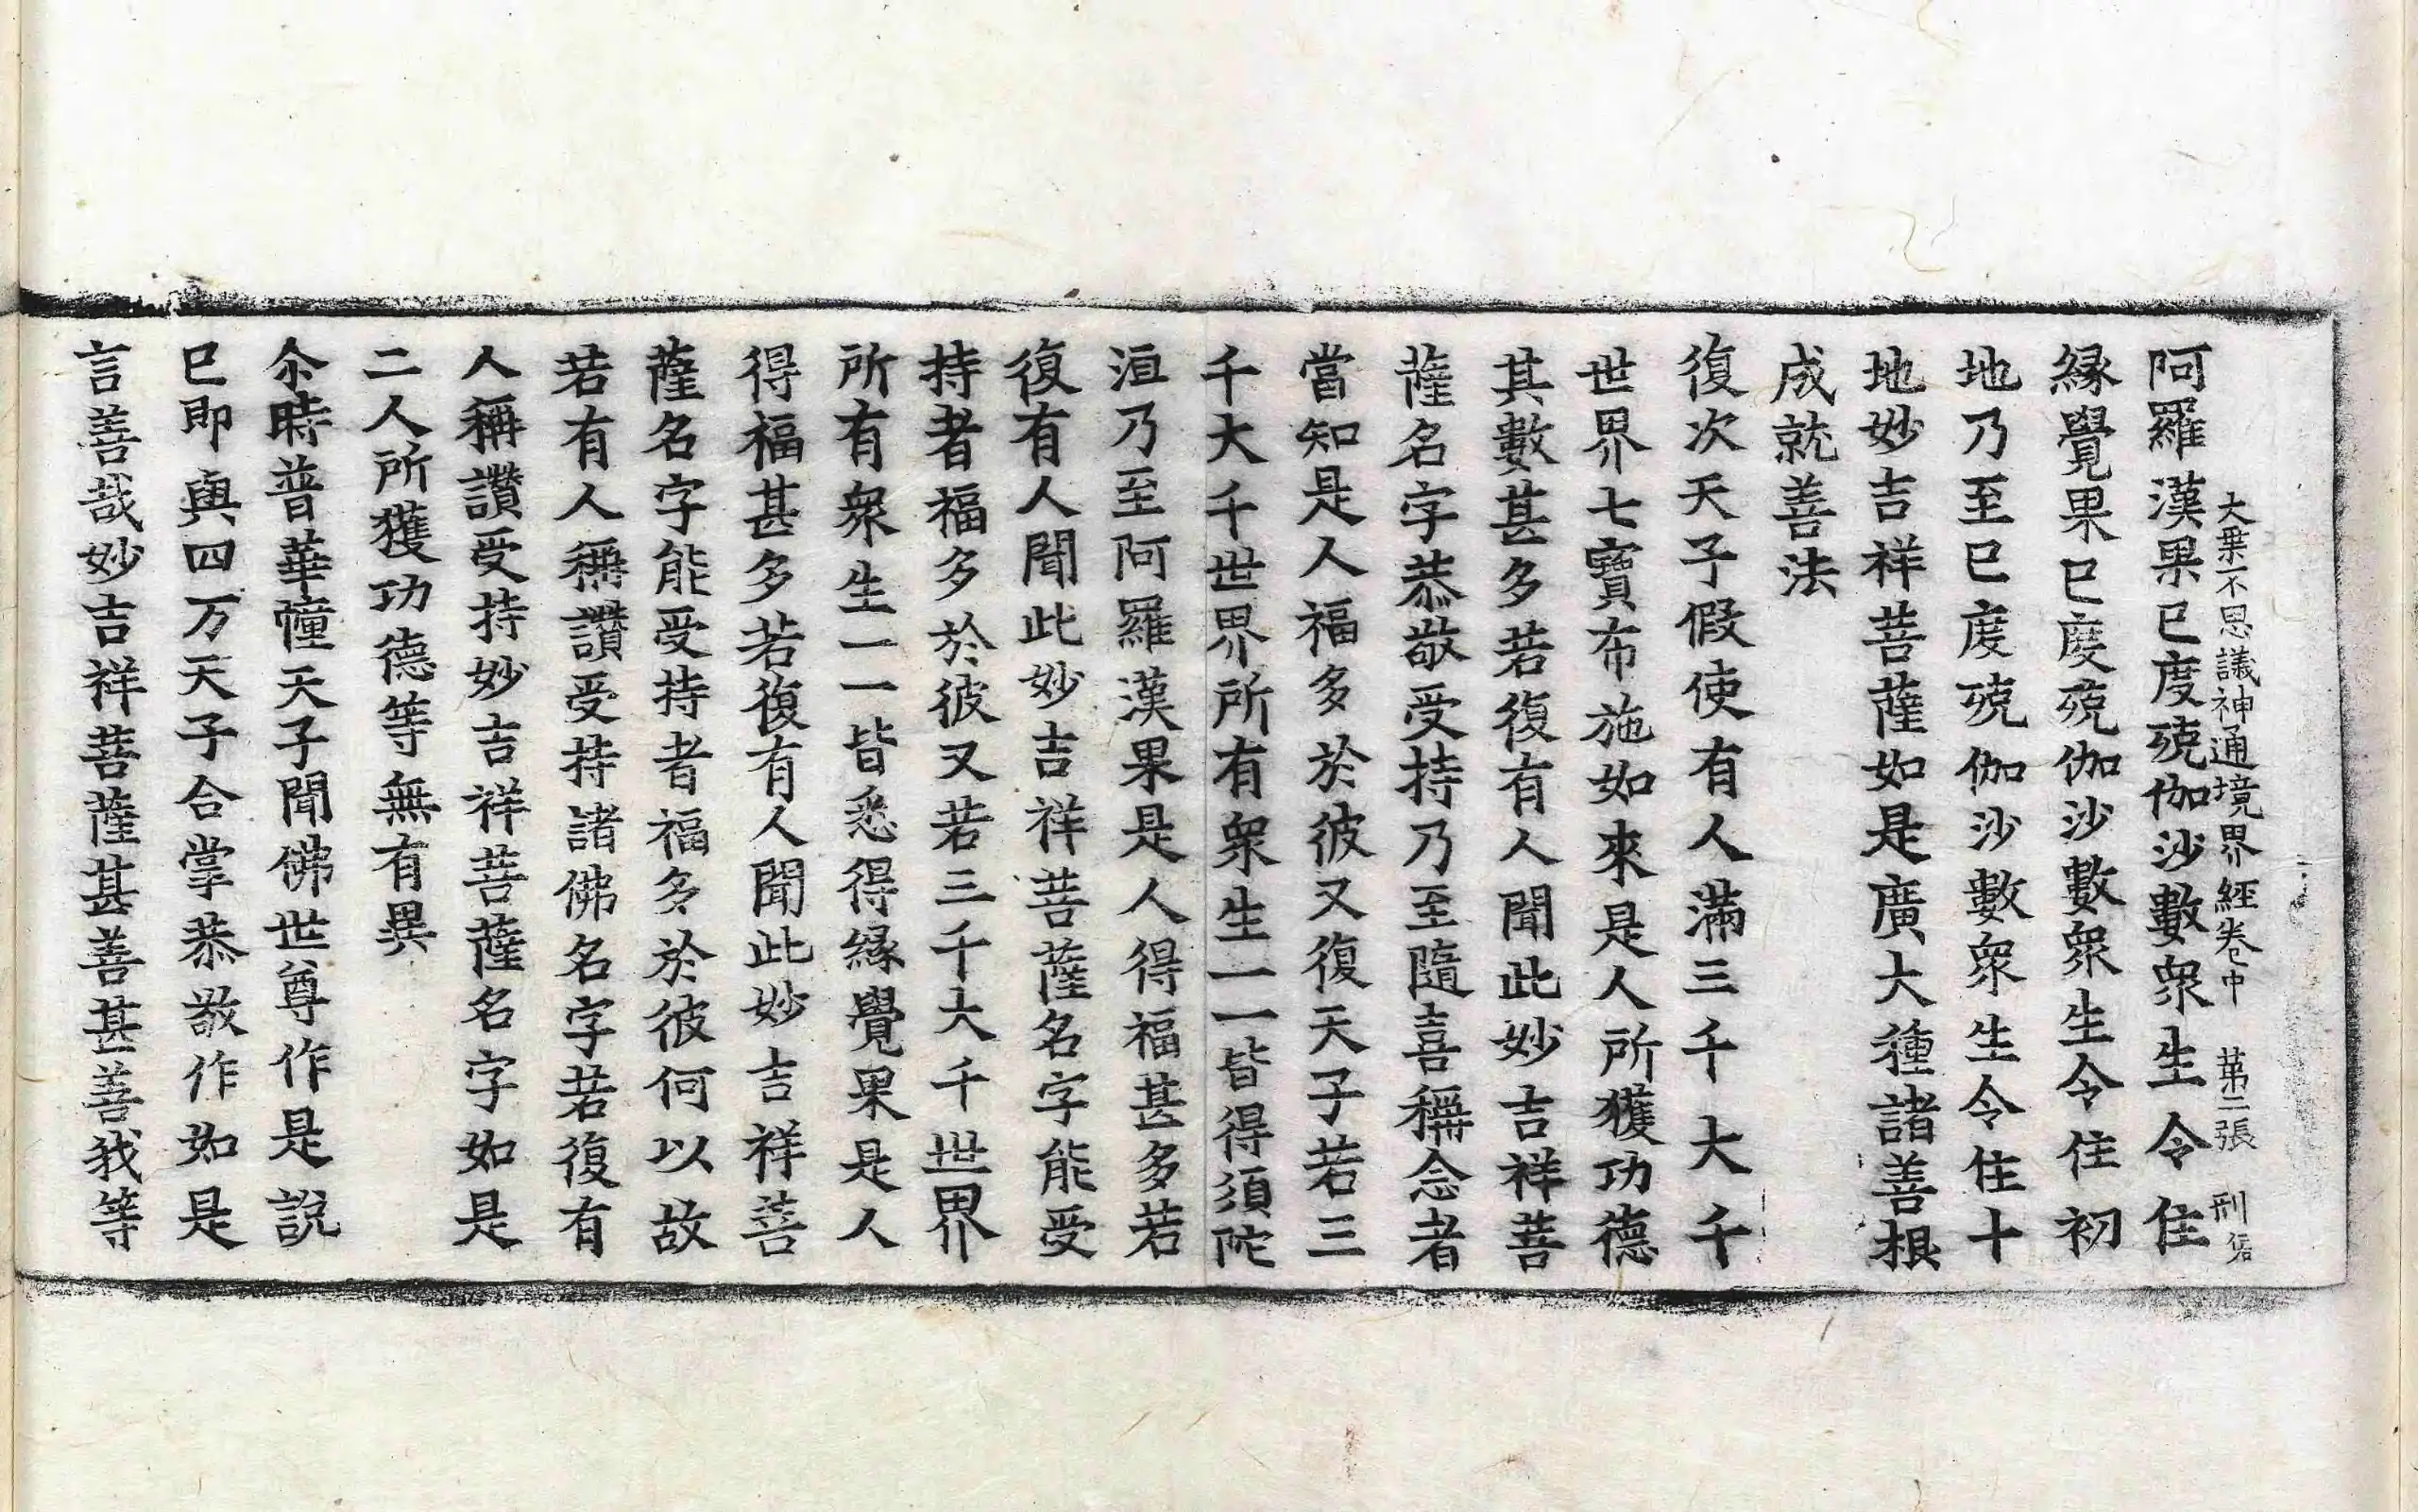 大乗不思議神通境界經卷中 苐二張 刑
阿羅漢果已度殑伽沙數衆生令住
縁覺果已度殑伽沙數衆生令住初
地乃至已度殑伽沙數衆生令住十
地妙吉祥菩薩如是廣大種諸善根
成就善法
復次天子假使有人滿三千大千
世界七寶布施如來是人所獲功德
其數甚多若復有人聞此妙吉祥菩
薩名字恭敬受持乃至隨喜稱念者
當知是人福多於彼又復天子若三
千大千世界所有衆生一一皆得須陀
洹乃至阿羅漢果是人得福甚多若
復有人聞此妙吉祥菩薩名字能受
持者福多於彼又若三千大千世界
所有衆生一一皆悉得縁覺果是人
得福甚多若復有人聞此妙吉祥菩
薩名字能受持者福多於彼何以故
若有人稱讚受持諸佛名字若復有
人稱讚受持妙吉祥菩薩名字如是
二人所獲功德等無有異
尒時普華幢天子聞佛世尊作是說
已即與四万天子合掌恭敬作如是
言善哉妙吉祥菩薩甚善甚善我等